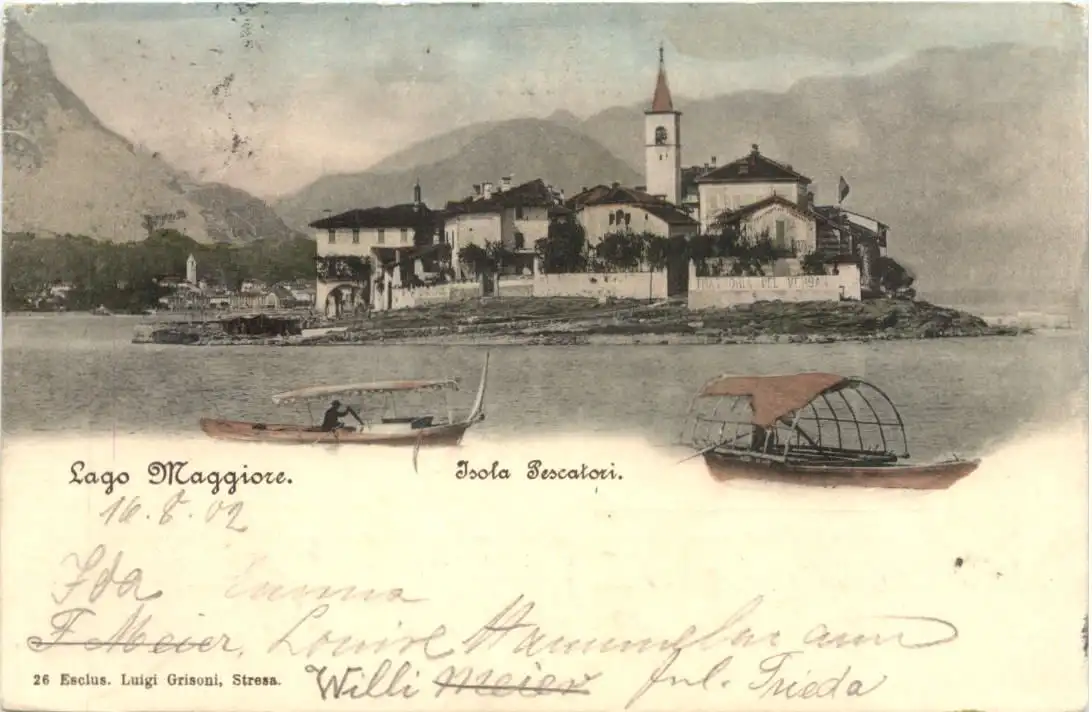 TRATTORIA DEL VERBANO
Lago Maggiore. Isola Pescatori.
16.8.02
Ida Emma
F Meier, Louise
Willi Meier Frl. Frieda
26 Esclus. Luigi Grisoni, Stresa.